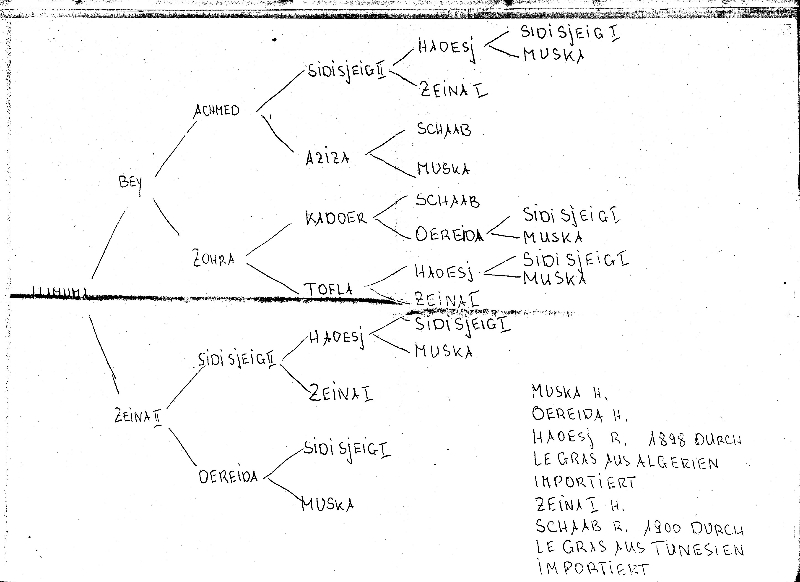 SIDI SJEIG I
HADESJ
MUSKA
SIDI SJEIG II
ZEINA I
ACHMED
SCHAAB
AZIZA
MUSKA
BEY
SCHAAB
KADOER
SIDI SJEIG I
OEREIDA
MUSKA
ZOHRA
SIDI SJEIG I
HADESJ
MUSKA
TOFLA
ZEINA I
SIDI SJEIG I
HADESJ
MUSKA
SIDI SJEIG II
ZEINA I
ZEINA II
SIDI SJEIG I
OEREIDA
MUSKA
MUSKA H.
OEREIDA H.
HADESJ R. 1898 DURCH
LE GRAS AUS ALGERIEN
IMPORTIERT
ZEINA I H.
SCHAAB R. 1900 DURCH
LE GRAS AUS TUNESIEN
IMPORTIERT